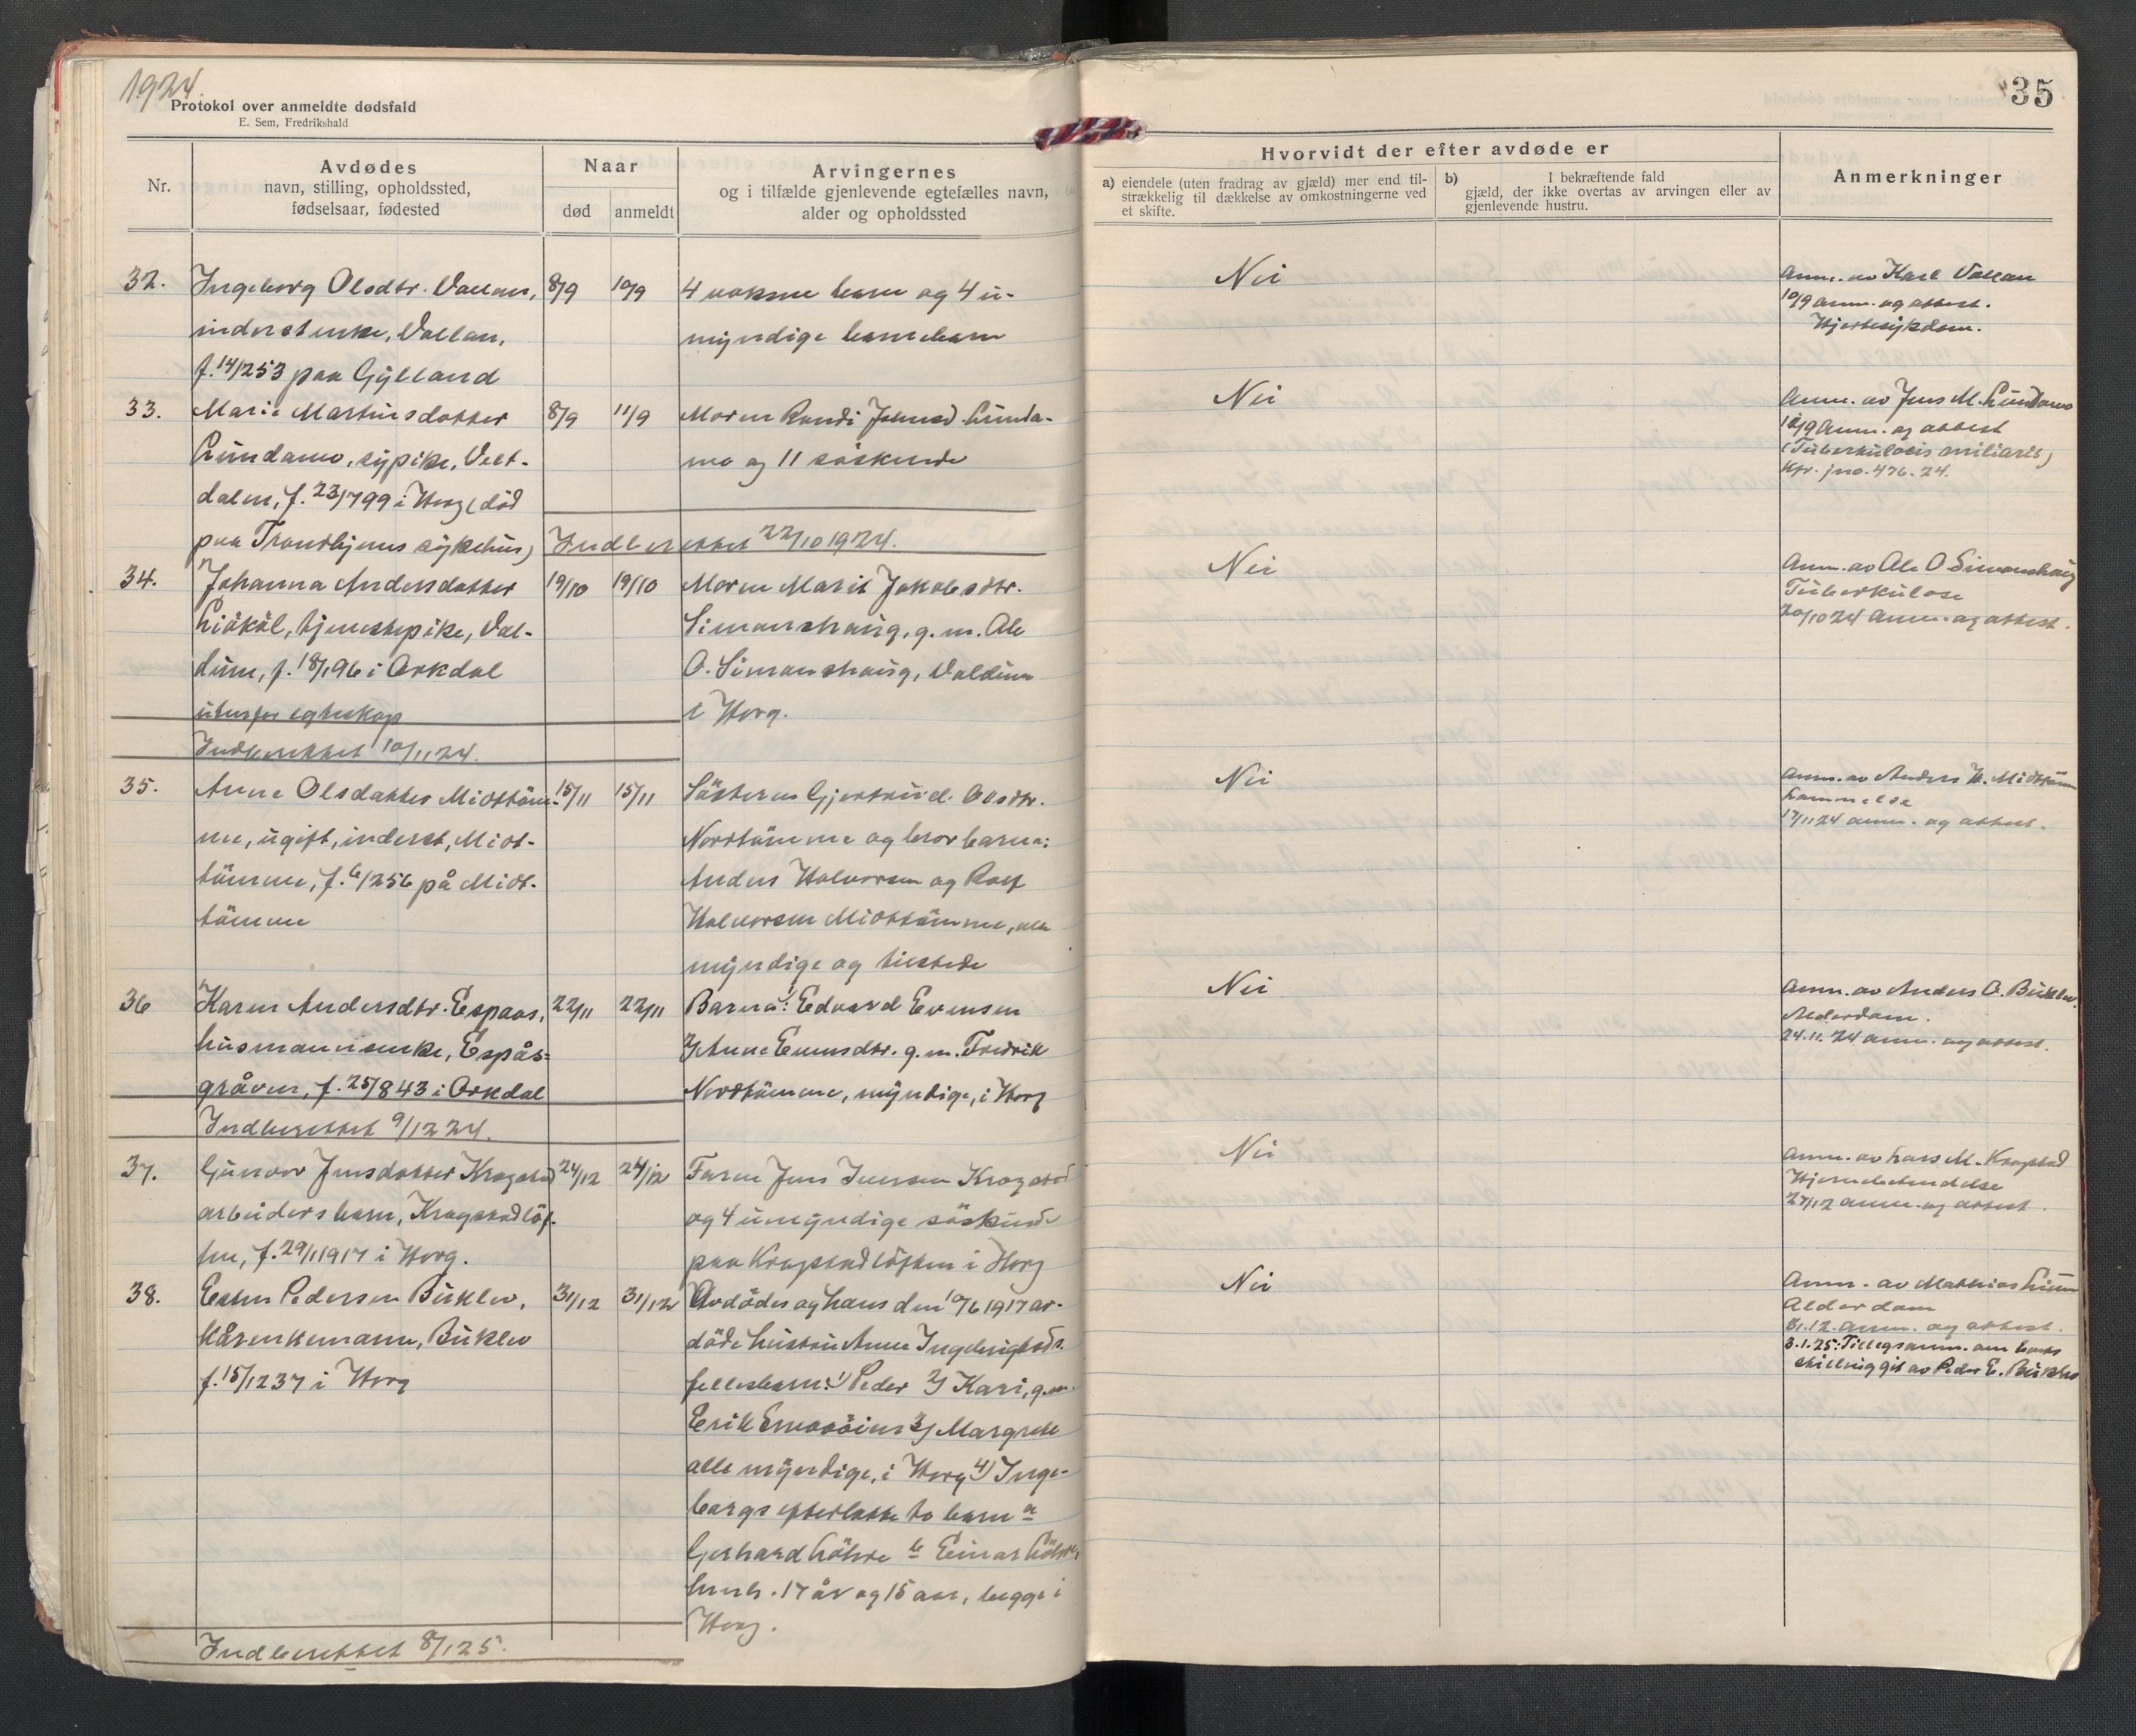 1924.
Protokol over anmeldte dødsfald
E. Sem, Fredrikshald
Nr.
Avdødes
navn, stilling, opholdssted,
fødselsaar, fødested
Naar
død
anmeldt
Arvingernes
og i tilfælde gjenlevende egtefælles navn,
alder og opholdssted
32.
Ingeborg Olsdtr. Vollan,
inderstenke, Vollan,
f. 14/2 53 paa Gylland
8/9
10/9
4 voksne barn og 4 u-
myndige barnebarn
33.
Marie Martinsdatter
Lundamo, sypike,
dalen, f. 23/7 99 i Horg (død
paa Trondhjems sykehus)
8/9
11/9
Moren Randi Johnsd. Lunda-
mo og 11 søskende
Indberettet 22/10 1924.
34.
Johanna Andersdatter
tjenestepike, Val-
dum, f. 18/1 96 i Orkdal
utenfor egteskap
19/10
19/10
Moren Marit Jakobsdtr.
Simonshaug, g. m. Ole
O. Simonshaug, Valdum
i Horg.
Indberettet 10/11 24.
35.
Anne Olsdatter Midttöm-
me, ugift, inderst, Midt-
tömme, f. 6/2 56 på Midt-
tömme
15/11
15/11
Søsteren Gjertrud Olsdtr.
Nordtömme og brorbarna:
Anders Halvorsen og Rolf
Halvorsen Midttömme, alle
myndige og tilstede
36
Karen Andersdtr. Espaas,
husmannsenke, Espås-
gråven, f. 25/8 43 i Orkdal
22/11
22/11
Barna: 1) Edvard Evensen
2) Anne Evensdtr. g. m. Fredrik
Nordtömme, myndige, i Horg
Indberettet 9/12 24.
37.
Gunvor Jensdatter Kragstad
arbeidersbarn, Kragstadlöf-
ten, f. 29/1 1917 i Horg.
24/12
24/12
Faren Jens Iversen Kragstad
og 4 umyndige söskende
paa Kragstadlöften i Horg
38.
Esten Pedersen Buklev,
kårenkemann, Buklev
f. 15/12 37 i Horg
31/12
31/12
Avdödes og hans den 10/6 1917 av-
döde hustru Anne Ingebrigtsds.
fellesbarn: 1) Peder 2) Kari, g. m.
Erik 3) Margrete
alle myndige, i Horg 4) Inge-
borgs efterlatte to barn a
Gerhard Löhre b Einar Löhre,
henh. 17 år og 15 aar, begge i
Horg.
Indberettet 8/1 25.
35
Hvorvidt der efter avdøde er
a) eiendele (uten fradrag av gjæld) mer end til-
strækkelig til dækkelse av omkostningerne ved
et skifte.
b) I bekræftende fald
gjæld, der ikke overtas av arvingen eller av
gjenlevende hustru.
Anmerkninger
Nei
Anm. av Karl Vollan
10/9 anm. og attest.
Hjertesykdom.
Nei
Anm. av Jens M. Lundamo
Anm. og attest
(Tuberkulosis miliaris)
Kfr. jno. 476. 24.
Nei
Anm. av Ole O Simonshaug
Tuberkulose
20/10 24 anm. og attest.
Nei
Anm. av Anders H. Midttömme
Lammelse
17/11 24 anm. og attest.
Nei
Anm. av Anders O. Buklev.
Alderdom.
24.11.24 anm. og attest.
Nei
Anm. av Lars M. Kragstad
Hjernebetendelse
27/12 anm. og attest.
Nei
Anm. av Mathias
Alderdom
31.12. anm. og attest.
3.1.25: Tillegsanm. om
git av Peder E. Buklev